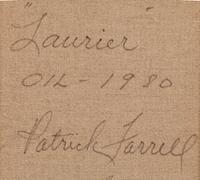 "Laurier"
OIL - 1980
Patrick Farrell